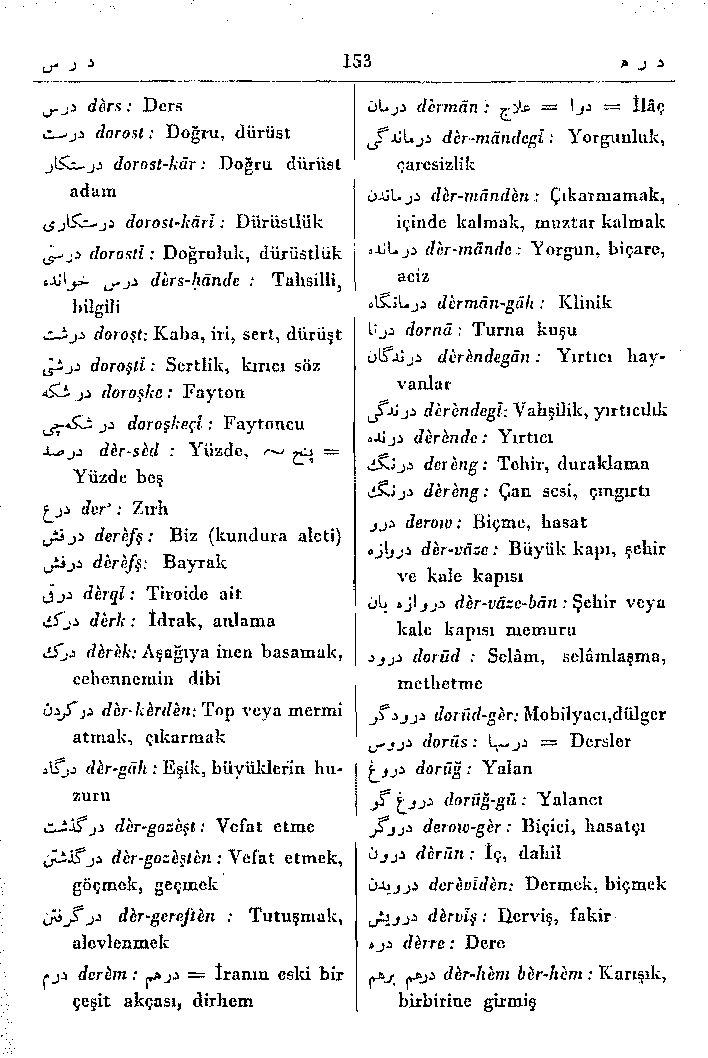 د ر س 153 د ر م
درس dèrs : Ders
درست dorost : Doğru, dürüst
درستكار dorost-kār : Doğru dürüst
adam
درستكارى dorost-kārī : Dürüstlük
درستى dorostī : Doğruluk, dürüstlük
درس خوانده dèrs-ḫānde : Tahsilli,
bilgili
درشت doroşt: Kaba, iri, sert, dürüşt
درشتى doroştī : Sertlik, kırıcı söz
در شكه doroşke : Fayton
در شكه‌چى doroşkeçī : Faytoncu
درصد dèr-sèd : Yüzde, ~ پنج =
Yüzde beş
درع der' : Zırh
درفش derèfş : Biz (kundura aleti)
درفش dèrèfş: Bayrak
درقى dèrqī : Tiroide ait
درك dèrk : İdrak, anlama
درك dèrèk: Aşağıya inen basamak,
cehennemin dibi
در كردن dèr-kèrdèn: Top veya mermi
atmak, çıkarmak
درگاه dèr-gāh : Eşik, büyüklerin hu-
zuru
درگذشت dèr-gozèşt : Vefat etme
درگذشتن dèr-gozèştèn : Vefat etmek,
göçmek, geçmek
درگرفتن dèr-gereftèn : Tutuşmak,
alevlenmek
درم derèm : درهم = İranın eski bir
çeşit akçası, dirhem
درمان dèrmān : علاج = دوا = İlâç
درماندگى dèr-māndegī : Yorgunluk,
çaresizlik
درماندن dèr-māndèn : Çıkarmamak,
içinde kalmak, muztar kalmak
درمانده dèr-mānde : Yorgun, biçare,
aciz
درمانگاه dèrmān-gāh : Klinik
درنا dornā : Turna kuşu
درندگان dèrèndegān : Yırtıcı hay-
vanlar
درندگى dèrèndegī: Vahşilik, yırtıcılık
درنده dèrènde : Yırtıcı
درنگ derèng : Tehir, duraklama
درنگ dèrèng : Çan sesi, çıngırtı
درو derow : Biçme, hasat
دروازه dèr-vāze : Büyük kapı, şehir
ve kale kapısı
دروازه بان dèr-vāze-bān : Şehir veya
kale kapısı memuru
درود dorūd : Selâm, selâmlaşma,
methetme
درودگر dorūd-gèr: Mobilyacı,dülger
دروس dorūs : درسها = Dersler
دروغ dorūğ : Yalan
دروغ گو dorūğ-gū : Yalancı
دروگر derow-gèr : Biçici, hasatçı
درون dèrūn : İç, dahil
درويدن derèvīdèn: Dermek, biçmek
درويش dèrvīş : Derviş, fakir
دره dèrre : Dere
درهم برهم dèr-hèm bèr-hèm : Karışık,
birbirine girmiş